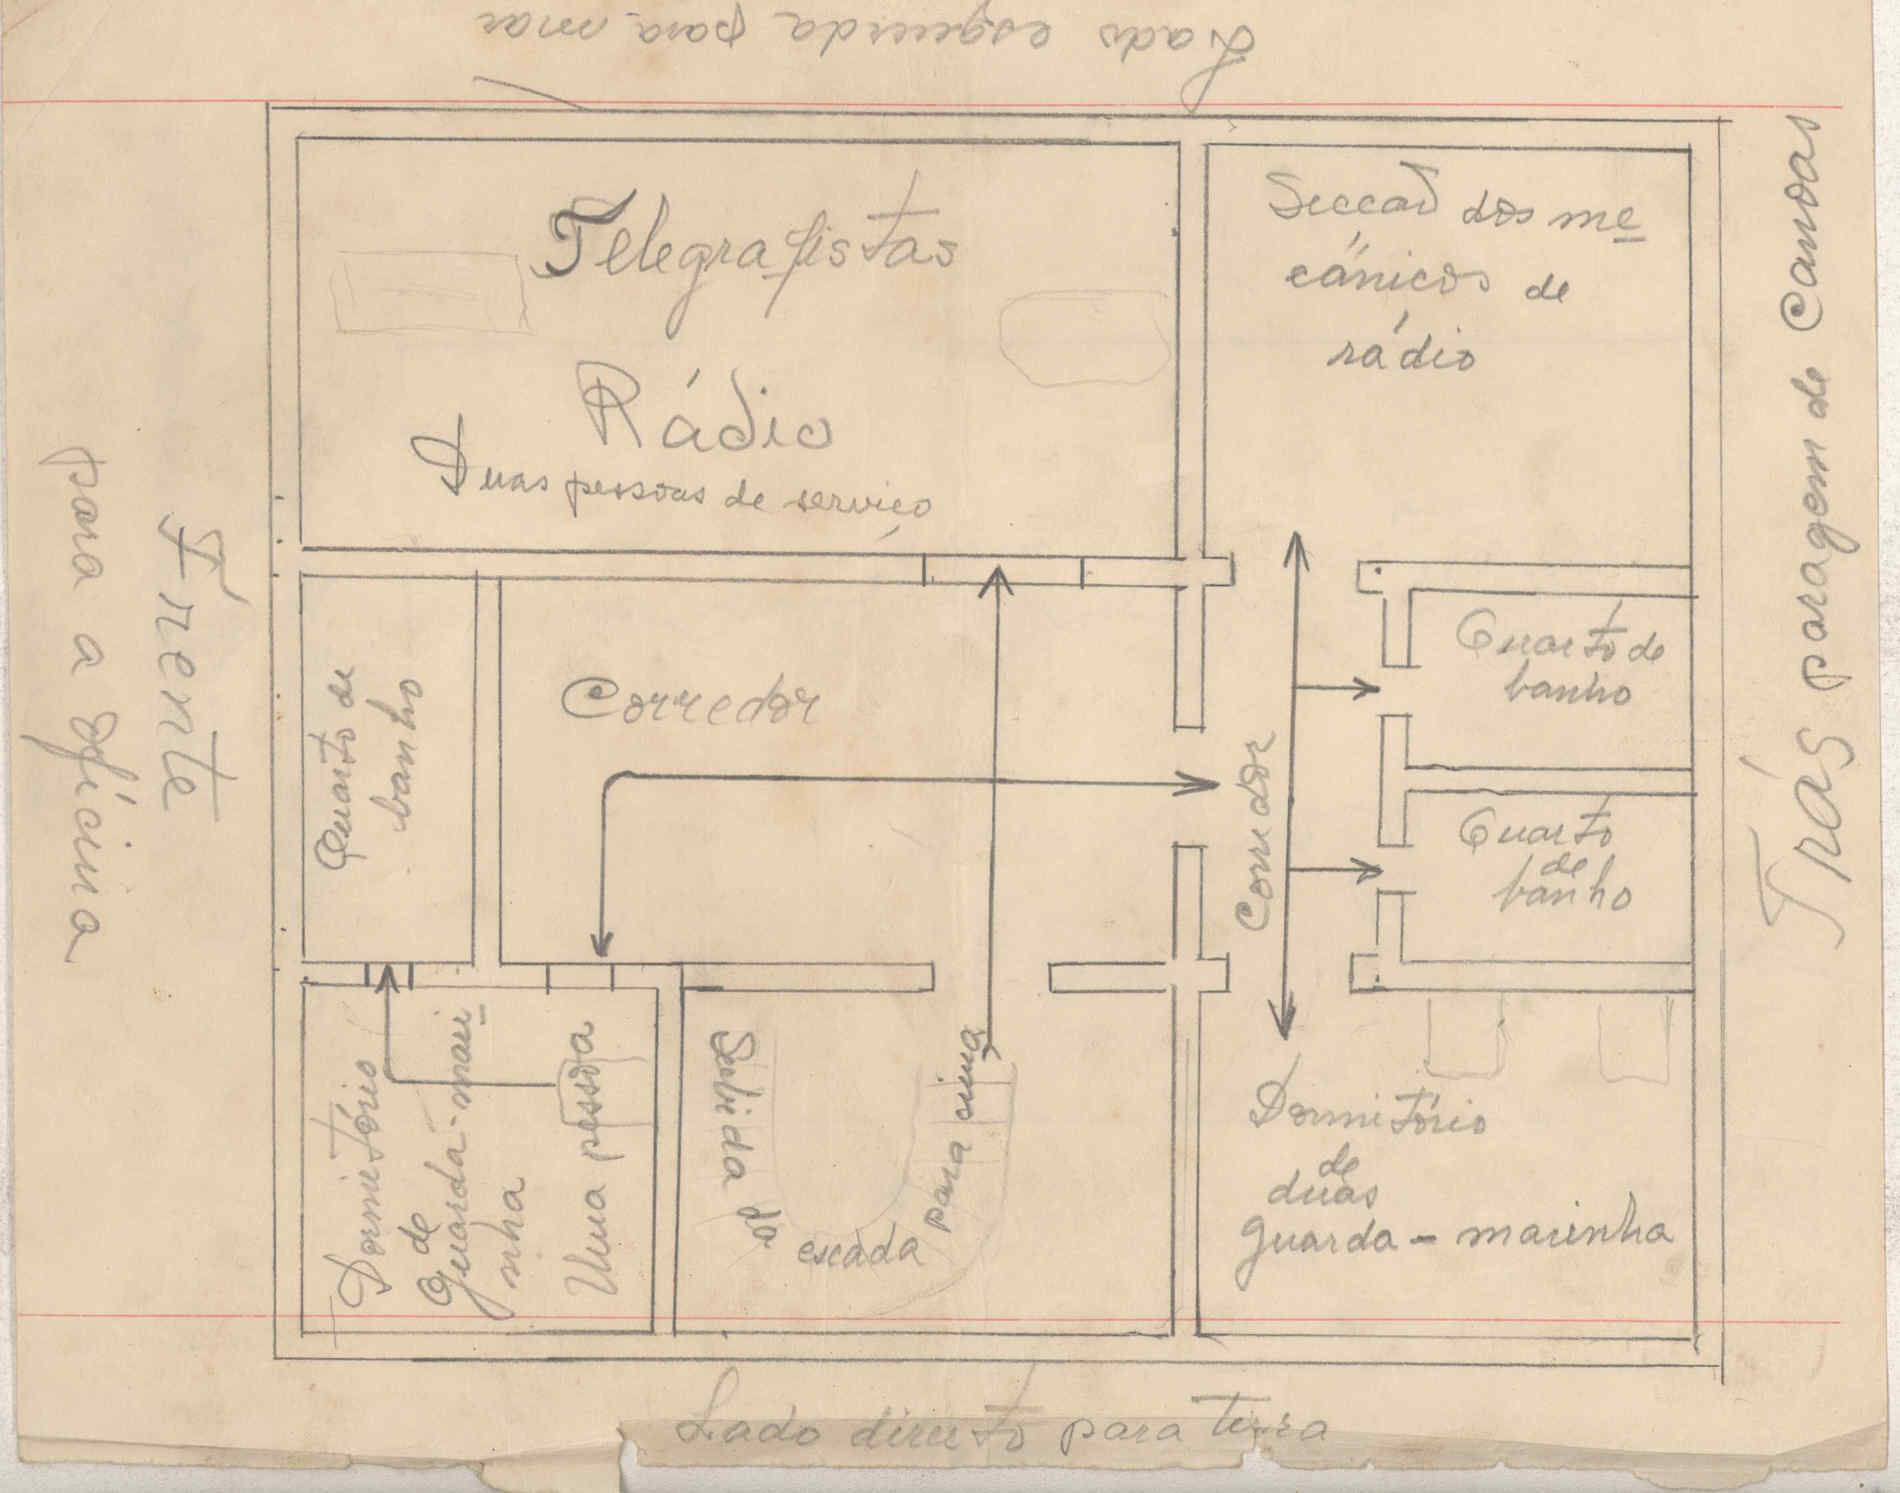 Lado esquerda para mar
Telegrafistas
Rádio
Duas pessoas de serviço
Seccão dos me
cânicos de
rádio
Frente
para a oficina
Quarto de
banho
Corredor
Corredor
Quarto de
banho
Quarto
de
banho
Trás paragem de Canoas
Dormitório
de
Guarda-mari
nha
Uma pessoa
Subida por
escada
para cima
Dormitório
de
duas
guarda-marinha
Lado direito para terra